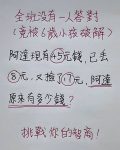 全班沒有一人答對
(竟被6歲小孩破解)
阿達現有45元錢，已丟
⑧元，又撿了⑰元，阿達
原來有多少錢？
挑戰你的智商！